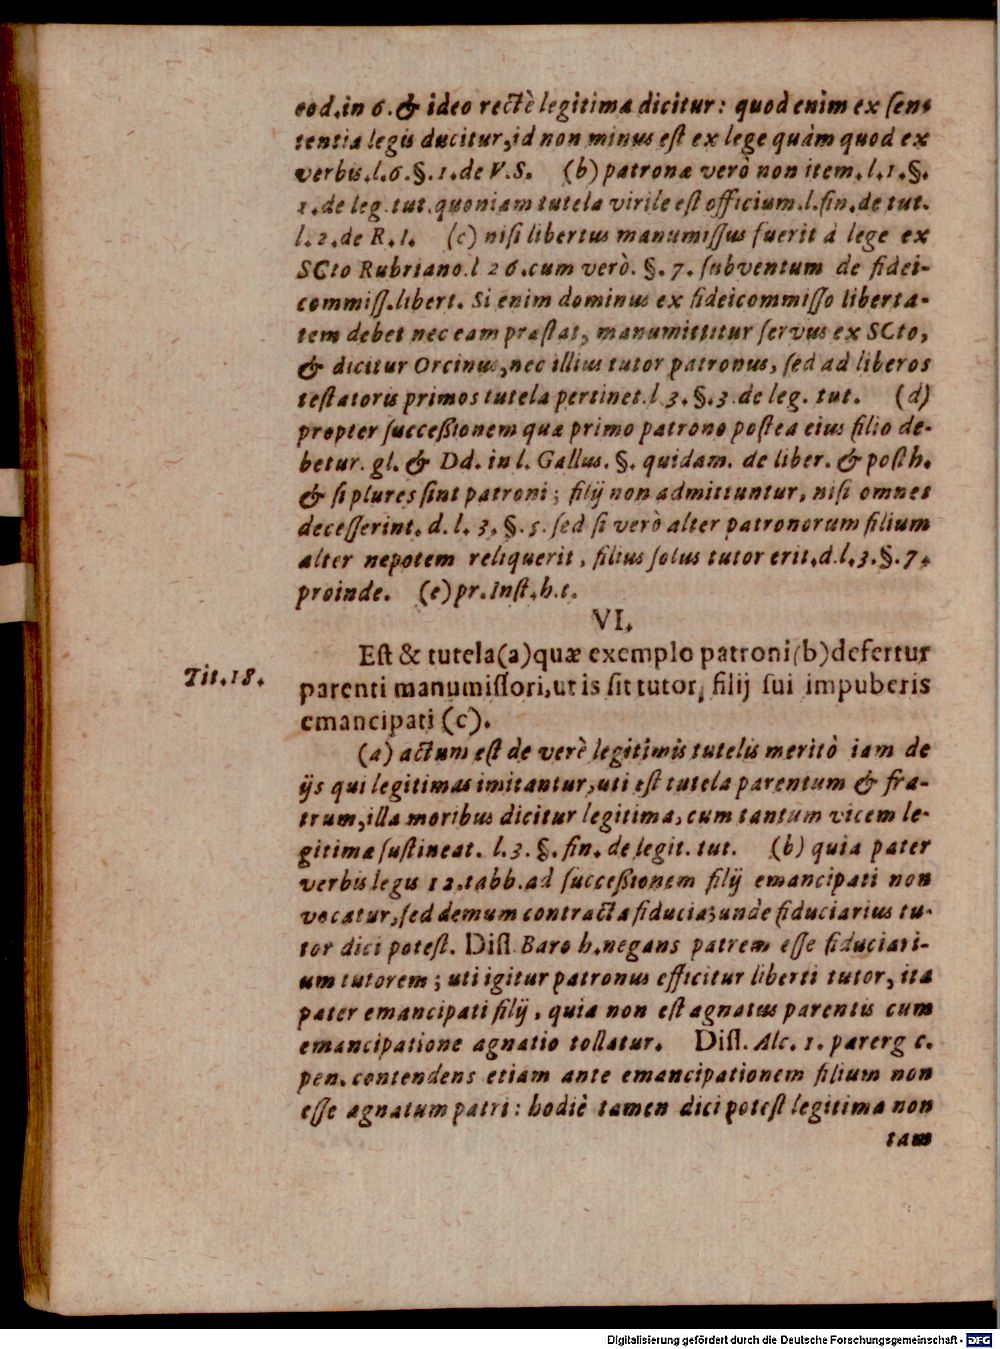 eod.in 6. & ideo rectè legitima dicitur: quod enim ex sen-
tentia legis ducitur, id non minus est ex lege quàm quod ex
verbis.l.6.§.1.de V.S. (b) patronæ verò non item.l.1.§.
1.de leg.tut.quoniam tutela virile est officium.l.fin.de tut.
l.2.de R.I. (c) nisi libertus manumissus fuerit à lege ex
SCto Rubriano.l 26.cum verò.§.7.subventum de fidei-
commiss.libert. Si enim dominus ex fideicommisso liberta-
tem debet nec eam præstat, manumittitur servus ex SCto,
& dicitur Orcinus, nec illius tutor patronus, sed ad liberos
testatoris primos tutela pertinet.l.3.§.3.de leg. tut. (d)
propter successionem quæ primo patrono postea eius filio de-
betur. gl. & Dd. in l. Gallus. §. quidam. de liber. & posth.
& si plures sint patroni; filij non admittuntur, nisi omnes
decesserint. d. l. 3. §. 5. sed si verò alter patronorum filium
alter nepotem reliquerit, filius solus tutor erit.d.l.3.§.7.
proinde. (e) pr.Inst.h.t.
VI.
Est & tutela (a) quæ exemplo patroni (b) defertur
Tit.18.
parenti manumissori, ut is sit tutor, filij sui impuberis
emancipati (c).
(a) actum est de verè legitimis tutelis meritò iam de
ijs qui legitimas imitantur, uti est tutela parentum & fra-
trum, illa moribus dicitur legitima, cum tantum vicem le-
gitimæ sustineat. l.3.§.fin.de legit. tut. (b) quia pater
verbis legis 12.tabb.ad successionem filij emancipati non
vocatur, sed demum contracta fiducia; unde fiduciarius tu-
tor dici potest. Diss. Baro h.negans patrem esse fiduciari-
um tutorem; uti igitur patronus efficitur liberti tutor, ita
pater emancipati filij, quia non est agnatus parentis cum
emancipatione agnatio tollatur. Diss. Alc. 1. parerg c.
pen.contendens etiam ante emancipationem filium non
esse agnatum patri: hodiè tamen dici potest legitima non
tam
Digitalisierung gefördert durch die Deutsche Forschungsgemeinschaft - DFG